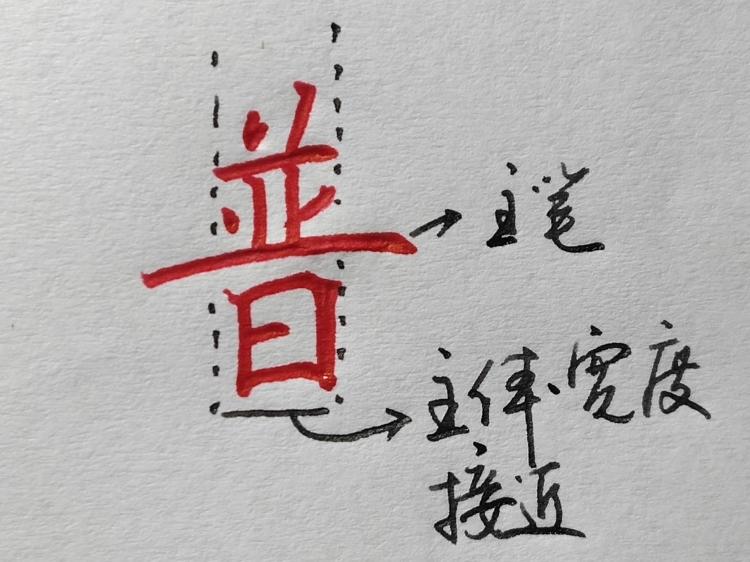 普
主笔
主体宽度
接近